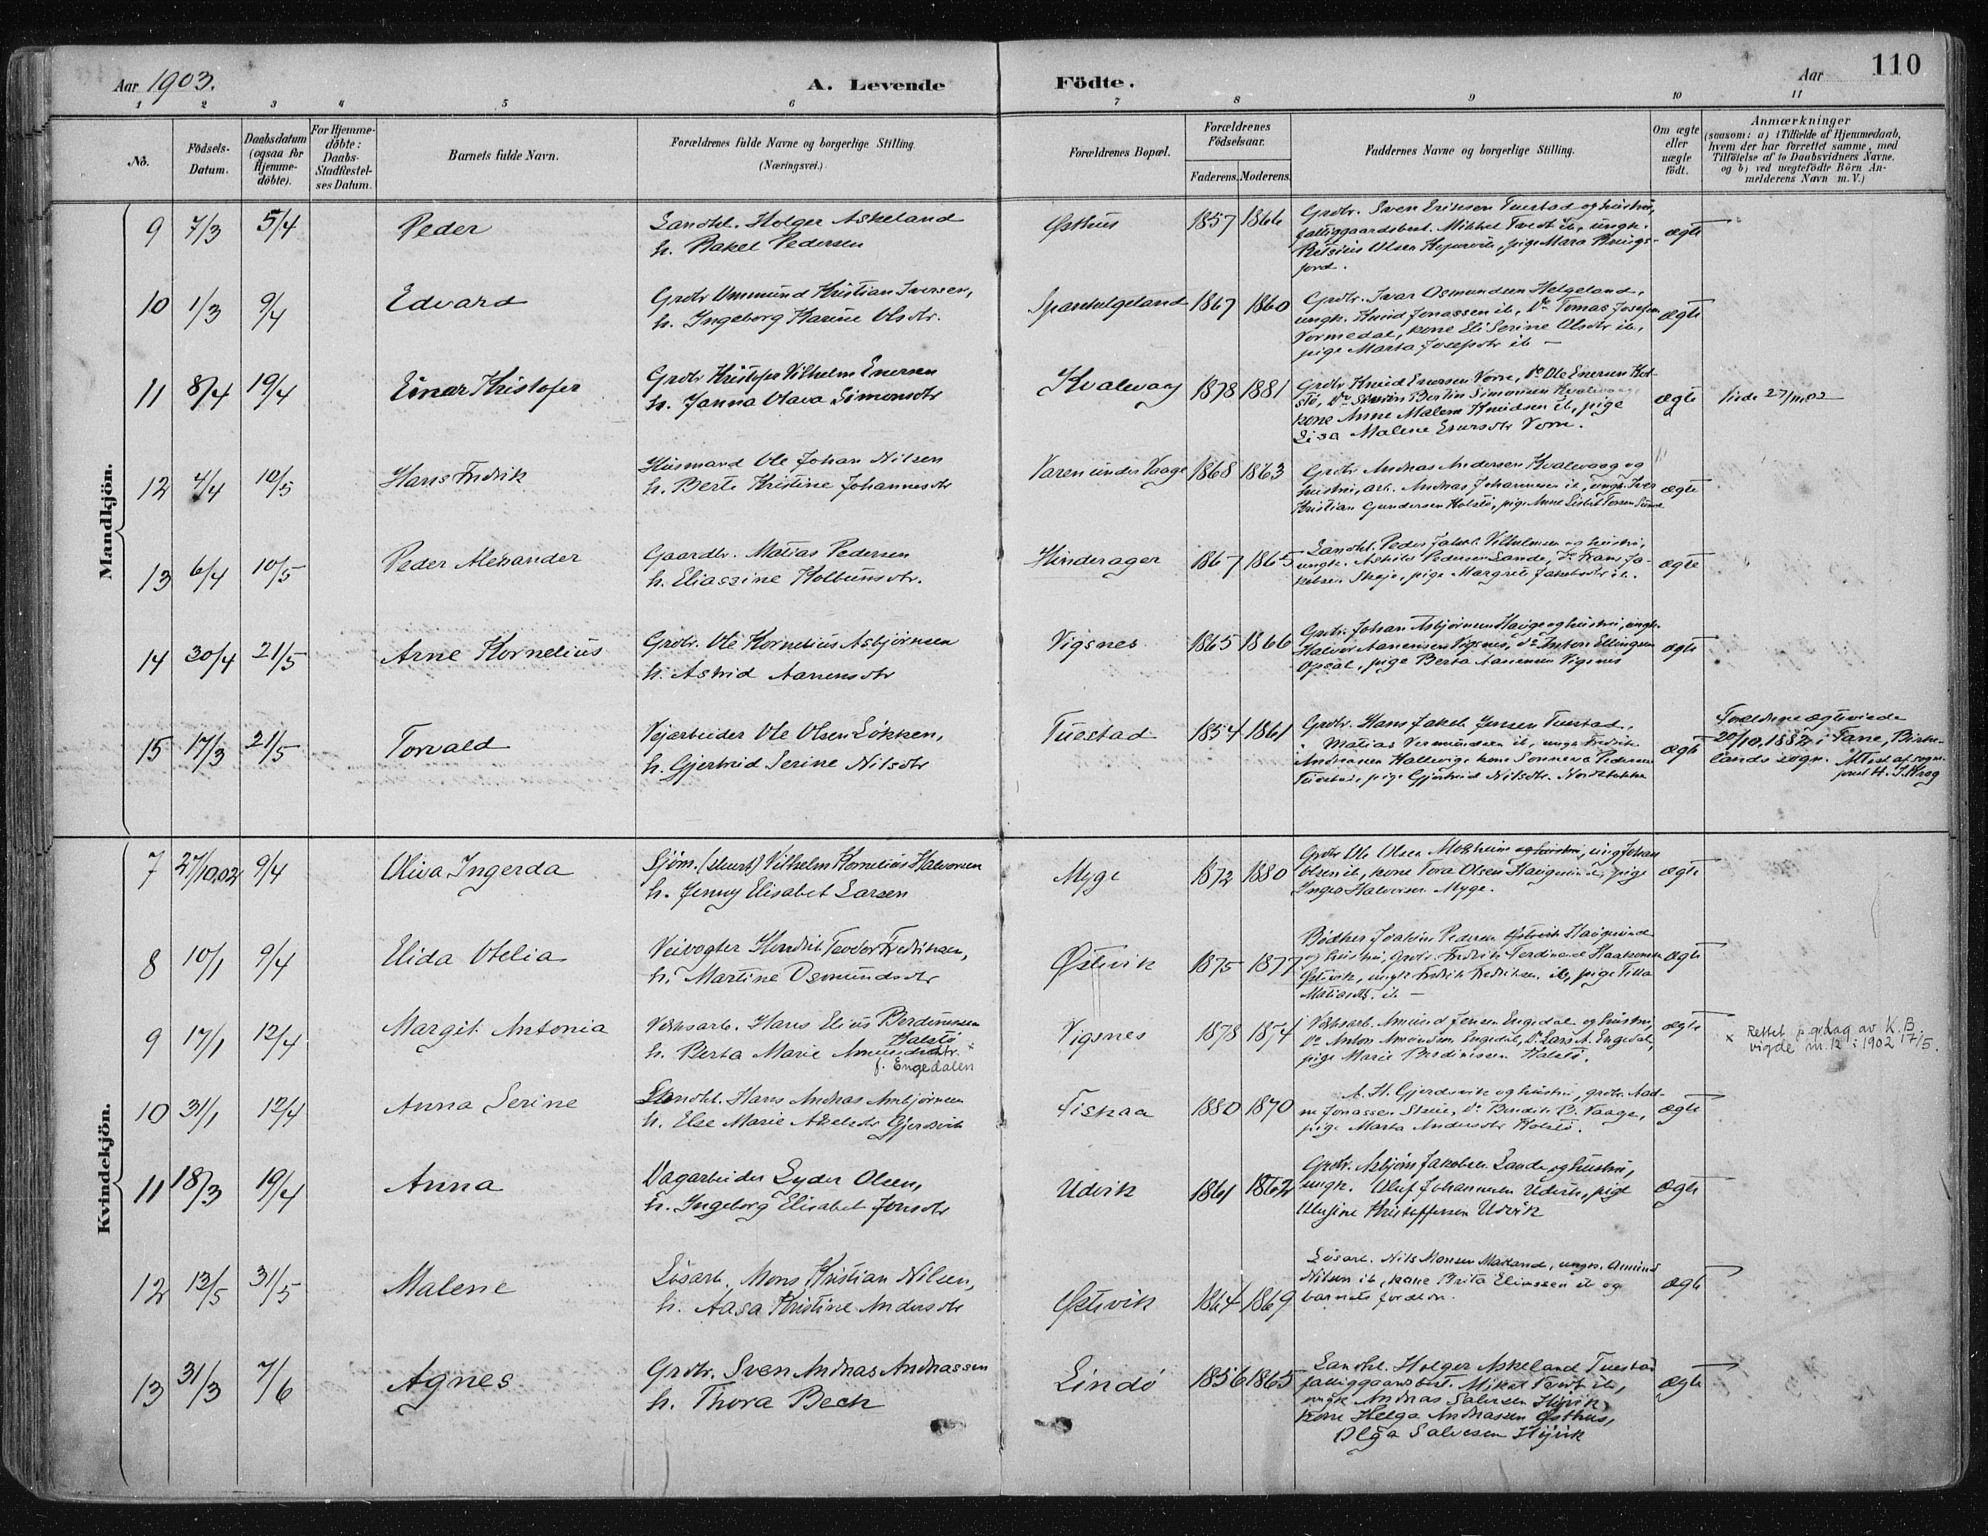 Aar 1903.
A. Levende Födte.
Aar
110
1 2 3 4 5 6 7 8 9 10 11
No.
Födsels-Datum.
Daabsdatum (ogsaa for Hjemme-döbte).
For Hjemme-döbte: Daabs-Stadfæstel-ses Datum.
Barnets fulde Navn.
Forældrenes fulde Navne og borgerlige Stilling.
(Næringsvei.)
Forældrenes Bopæl.
Forældrenes Födselsaar.
Faderens. Moderens.
Faddernes Navne og borgerlige Stilling.
Om ægte eller uægte födt.
Anmærkninger
(saasom: a) i Tilfælde af Hjemmedaab,
hvem der har forrettet samme, med
Tilföielse af to Daabsvidners Navne.
og b) ved uægtefödte Börn An-
melderens Navn m. V.)
Mandkjön.
9 7/3 5/4 Peder
Landhl. Holger Askeland
h. Rakel Pedersen
Østhus 1857 1866
Grdbr. Sven Eriksen Tuestad og hustru,
fattiggaardsbest. Mikkel Tvedt ib, ungk.
Olsen, pige Mara
fjord.
ægte
10 1/3 9/4 Edvard
Grdbr Ommund Kristian Iversen,
h. Ingeborg Karine Olsdtr.
Spanhelgeland 1867 1860
Grdbr. Ivar Osmundsen Helgeland,
ungk. Knud Jonassen ib, Do Tomas Josefsen
Vormedal, kone Eli Serine Olsdtr ib,
pige Marta Josefsdtr ib —
ægte
11 8/4 19/4 Einar Kristofer
Grdbr Kristofer Vilhelm Enersen
h. Janna Olava Simonsdtr
Kvalevaag 1878 1881
Grdbr Knud Enersen Vorre, Do Ole Enersen Kol-
stø, Do Bertin Simonsen
kone Anne Malene Knudsen ib, pige
Lisa Malene Enersdtr Vorre.
ægte
12 4/4 10/5 Hans Fredrik
Husmand Ole Johan Nilsen
h. Berte Kristine Johannesdtr
Varen under Vaage 1868 1863
Grdbr Andreas Andersen Kvalevaag og
hustru, arb. Andreas Johannesen ib, ungk. Iver
Kristian Gundersen Kolstø, pige Anne Lisbet
ægte
13 6/4 10/5 Peder Alexander
Gaardbr. Matias Pedersen
h. Eliassine Kolbensdtr.
Hinderager 1867 1865
Landhl. Peder Jakob Vilhelmsen og hustru,
ungk. Pedersen Sande, Do Frans Ja-
kobsen Skeje, pige Margrete Jakobsdtr ib.
ægte
14 30/4 21/5 Arne Kornelius
Grdbr. Ole Kornelius Asbjørnsen
h. Astrid Aanensdtr
Vigsnes 1865 1866
Grdbr. Johan Asbjørnsen Hauge og hustru, ungk.
Halvor Aanensen Vigsnes, Do Anton Ellingsen
Opsal, pige Berta Aanensen Vigsnes
ægte
15 17/3 21/5 Torvald
Vejarbeider Ole Olsen Løkken,
h. Gjertrud Serine Nilsdtr
Tuestad 1854 1861
Grdbr. Hans Jakob Jensen Tuestad,
Matias ib, ungk Fredrik
Andreassen, kone Pedersen
Tuestad, pige Gjertrud Nilsdtr.
ægte
Forældrene ægteviede
20/10.1882 i Fane, Birke-
lands sogn. Attest af sogne-
prest H. J. Krog
Kvindekjön.
7 27/10.02 9/4 Oliva Ingerda
Sjøm. Vilhelm Kornelius Halvorsen
h. Jenny Elisabet Larsen
Myge 1872 1880
Grdbr Ole Olsen og hustru, ung Johan
Olsen ib, kone Tora Olsen Haugesund, pige
Inger Halvorsen Myge.
ægte
8 10/1 9/4 Elida Otelia
Veivogter Hendrik Teodor Fredriksen,
h. Martine Osmundsdtr
Østevik 1875 1877
Bødker Joakim Pedersen Haugesund
og hustru, Grdbr. Fredrik Ferdinand Haakonsen
Østevik, ungk Fredrik Fredriksen ib, pige Tilla
Matiasdtr. ib —
ægte
9 17/1 12/4 Margit Antonia
Verksarb. Hans Elius Berdinessen
Kolstø
h. Berta Marie Amundsdtr. x
f. Engedalen
Vigsnes 1878 1874
Verksarb. Amund Jensen Engedal og hustru,
Do Anton Amundsen Engedal, Do Lars A. Engedal,
pige Marie Berdinessen Kolstø.
ægte
x Rettet p. grdlag av K.B.
vigde nr. 12 i 1902 17/5.
10 31/1 12/4 Anna Serine
Landhl. Hans Andreas Ambjørnsen
h. Else Marie Akselsdtr Gjerdsvik
Fiskaa 1880 1870
A. H. Gjerdsvik og hustru, grdbr. Aad-
ne Jonassen Skeie, Do Bendik B. Vaage,
pige Marta Andersdtr Kolstø.
ægte
11 18/3 19/4 Anna
Dagarbeider Lyder Olsen,
h. Ingeborg Elisabet Jonsdtr
Udvik 1861 1862
Grdbr. Asbjørn Jakobsen Sande og hustru,
ungk. Oluf Johannesen Udvik, pige
Kristoffersen Udvik
ægte
12 13/5 31/5 Malene
Løsarb. Mons Kristian Nilsen,
h. Aasa Kristine Andersdtr
Østevik 1864 1869
Løsarb. Nils Monsen Madland, ungk. Amund
Nilsen ib, kone Brita Eliassen ib og
barnets forældre.
ægte
13 31/3 7/6 Agnes
Grdbr. Sven Andreas Andreassen
h. Thora Bech
Lindø 1856 1865
Landhl. Holger Askeland Tuestad
fattiggaardsbest. Mikal Tvedt ib,
ungk Andreas Salvesen Hyvik,
kone Helga Andreassen Østhus,
Olga Salvesen Hyvik
ægte